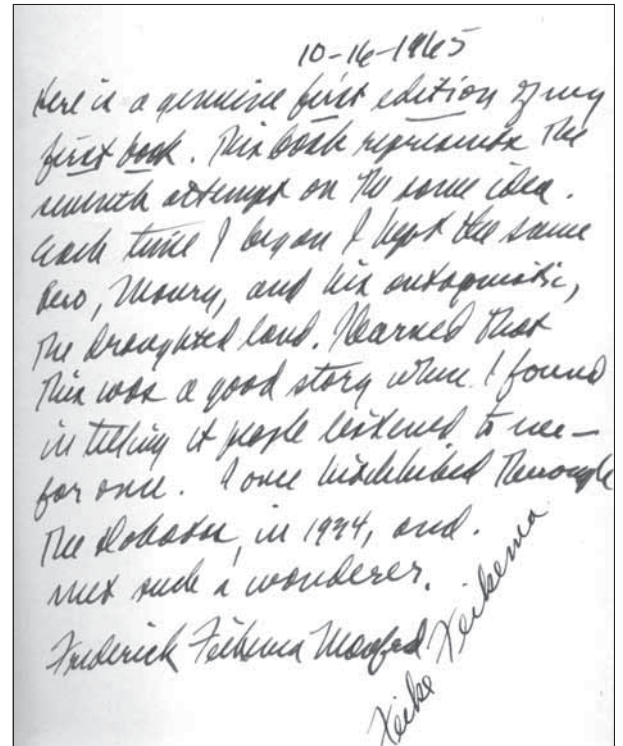 10-16-1965
Here is a genuine first edition of my
first book. This book represents the
seventh attempt on the same idea.
Each time I began I kept the same
hero, Maury, and his antagonistic,
the droughted land. I learned that
this was a good story when I found
in telling it people listened to me—
for once. I once hitchhiked through
the Dakotas, in 1934, and
met such a wonderer.
Frederick Feikema Manfred
Feike Feikema